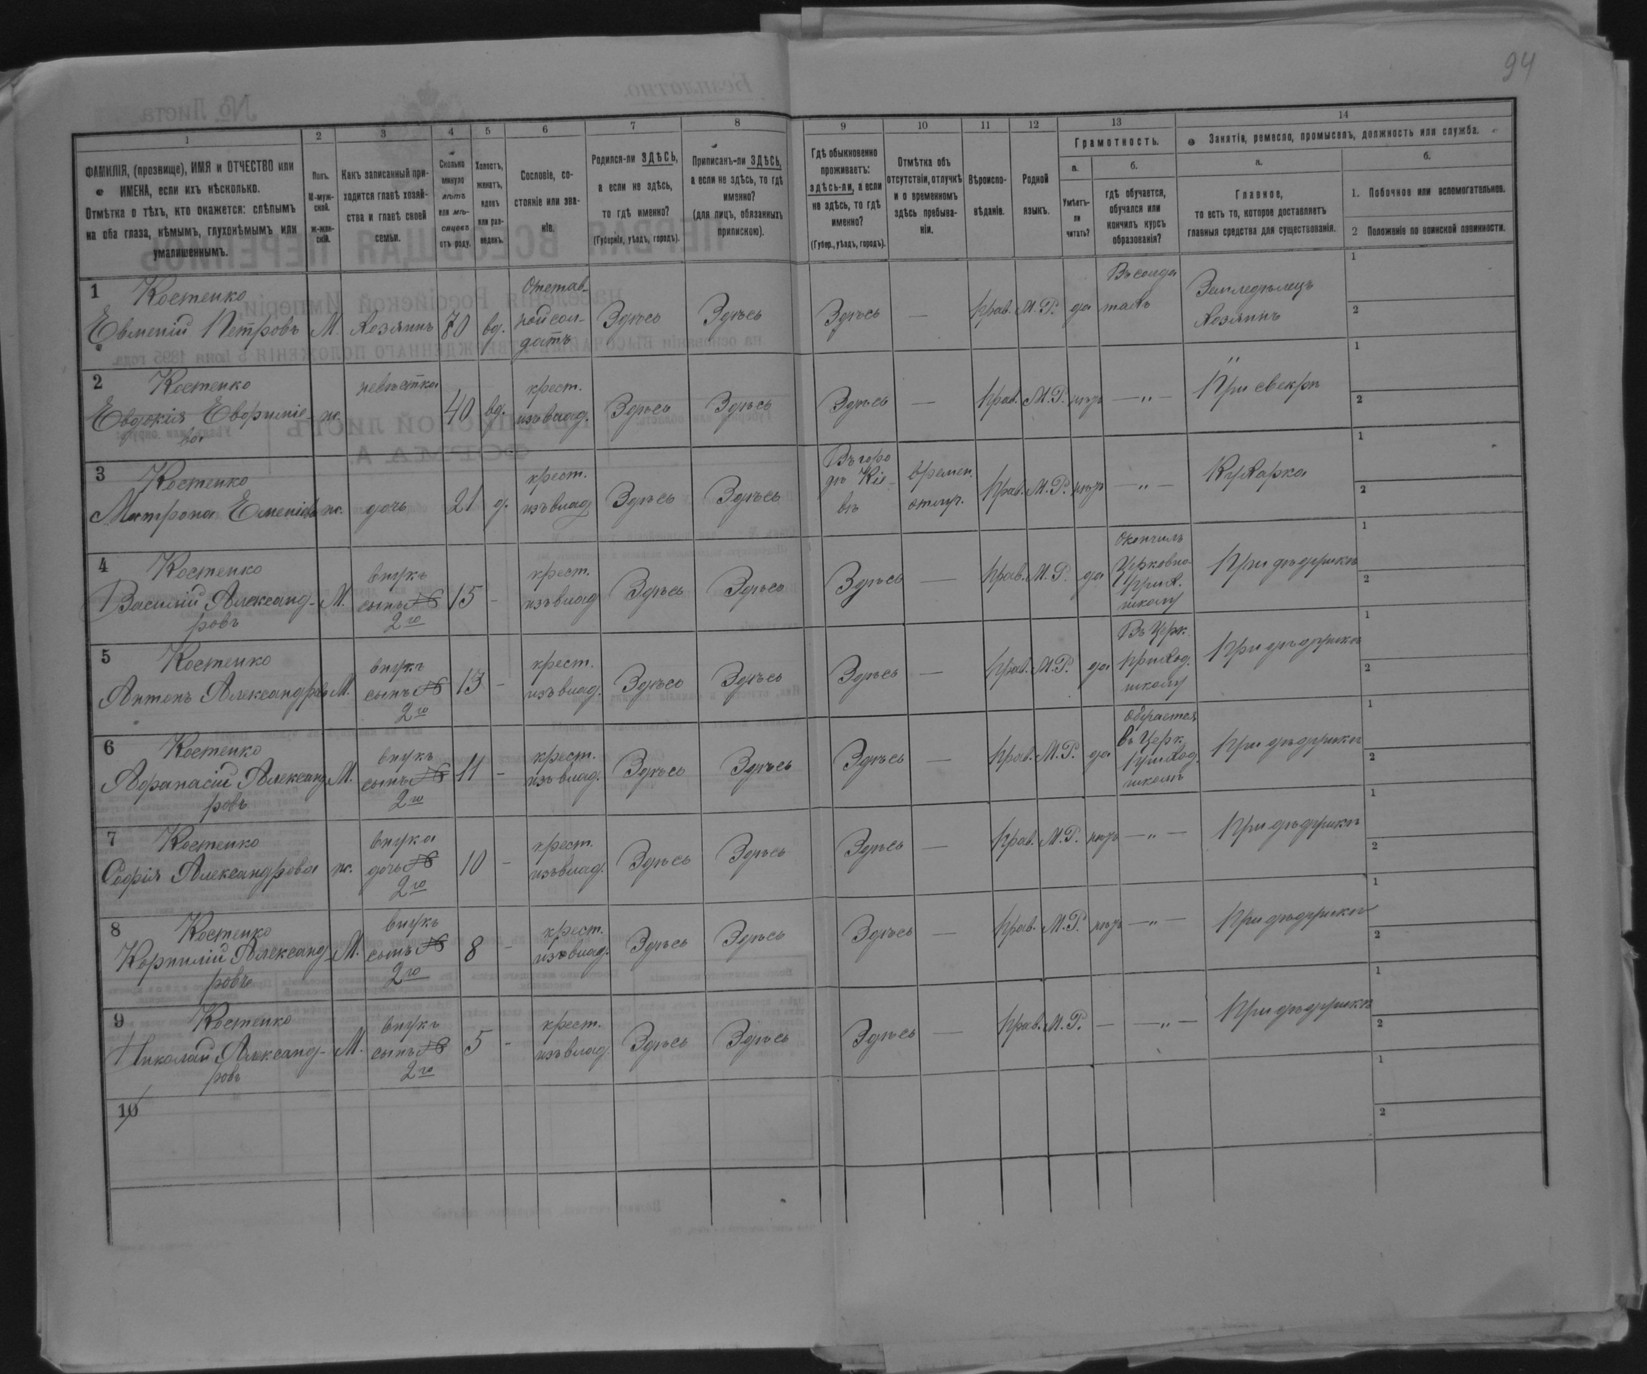 94
1 2 3 4 5 6 7 8 9 10 11 12 13 14
ФАМИЛІЯ, (прозвище), ИМЯ и ОТЧЕСТВО или
ИМЕНА, если ихъ нѣсколько.
Отмѣтка о тѣхъ, кто окажется: слѣпымъ
на оба глаза, нѣмымъ, глухонѣмымъ или
умалишеннымъ.
Полъ.
М-муж-
ской.
ж-жен-
скій.
Какъ записанный при-
ходится главѣ хозяй-
ства и главѣ своей
семьи.
Сколько
минуло
лѣтъ
или мѣ-
сяцевъ
отъ роду.
Холостъ,
женатъ,
вдовъ
или раз-
веденъ.
Сословіе, со-
стояніе или зва-
ніе.
Родился-ли ЗДѢСЬ,
а если не здѣсь,
то гдѣ именно?
(Губернія, уѣздъ, городъ).
Приписанъ-ли ЗДѢСЬ,
а если не здѣсь, то гдѣ
именно?
(для лицъ, обязанныхъ
припискою).
Гдѣ обыкновенно
проживаетъ:
здѣсь-ли, а если
не здѣсь, то гдѣ
именно?
(Губер., уѣздъ, городъ).
Отмѣтка объ
отсутствіи, отлучкѣ
и о временномъ
здѣсь пребыва-
ніи.
Вѣроиспо-
вѣданіе.
Родной
языкъ.
Грамотность.
а.
Умѣетъ-
ли
читать?
б.
гдѣ обучается,
обучался или
кончилъ курсъ
образованія?
Занятіе, ремесло, промыселъ, должность или служба.
а.
Главное,
то есть то, которое доставляетъ
главныя средства для существованія.
б.
1. Побочное или вспомогательное.
2 Положеніе по воинской повинности.
1 Костенко
Евменій Петровъ М Хозяинъ 70 вд. Отстав-
ной сол-
датъ Здѣсь Здѣсь Здѣсь — прав. М.Р. да Въ солда
тахъ Земледѣлецъ
Хозяинъ 1
2
2 Костенко
Евдокія ж. невѣстка 40 вд. крест.
изъ влад. Здѣсь Здѣсь Здѣсь — прав. М.Р. нѣтъ — „ — При свекрѣ 1
2
3 Костенко
Матрона ж. дочь 21 д. крест.
изъ влад. Здѣсь Здѣсь Въ горо
дѣ Кіе-
вѣ времен.
отлуч. прав. М.Р. нѣтъ — „ — Кухарка 1
2
4 Костенко
Василій Александ-
ровъ М. внукъ
сынъ №
2го 15 - крест.
изъ влад Здѣсь Здѣсь Здѣсь — прав. М.Р. да окончилъ
Церковно
прих.
школу При дѣдушкѣ 1
2
5 Костенко
Антонъ Александровъ М. внукъ
сынъ №
2го 13 - крест.
изъ влад. Здѣсь Здѣсь Здѣсь — прав. М.Р. да Въ Церк.
приход.
школу При дѣдушкѣ 1
2
6 Костенко
Афанасій Александ
ровъ М. внукъ
сынъ №
2го 11 - крест.
изъ влад. Здѣсь Здѣсь Здѣсь — прав. М.Р. да обучается
въ Церк.
приход.
школѣ При дѣдушкѣ 1
2
7 Костенко
Софія Александрова ж. внука
дочь №
2го 10 - крест.
изъ влад. Здѣсь Здѣсь Здѣсь — прав. М.Р. нѣтъ — „ — При дѣдушкѣ 1
2
8 Костенко
Корнилій Александ-
ровъ М. внукъ
сынъ №
2го 8 - крест.
изъ влад. Здѣсь Здѣсь Здѣсь — прав. М.Р. нѣтъ — „ — При дѣдушкѣ 1
2
9 Костенко
Николай Александ-
ровъ М. внукъ
сынъ №
2го 5 - крест.
изъ влад. Здѣсь Здѣсь Здѣсь — прав. М.Р. — — „ — При дѣдушкѣ 1
2
10 1
2